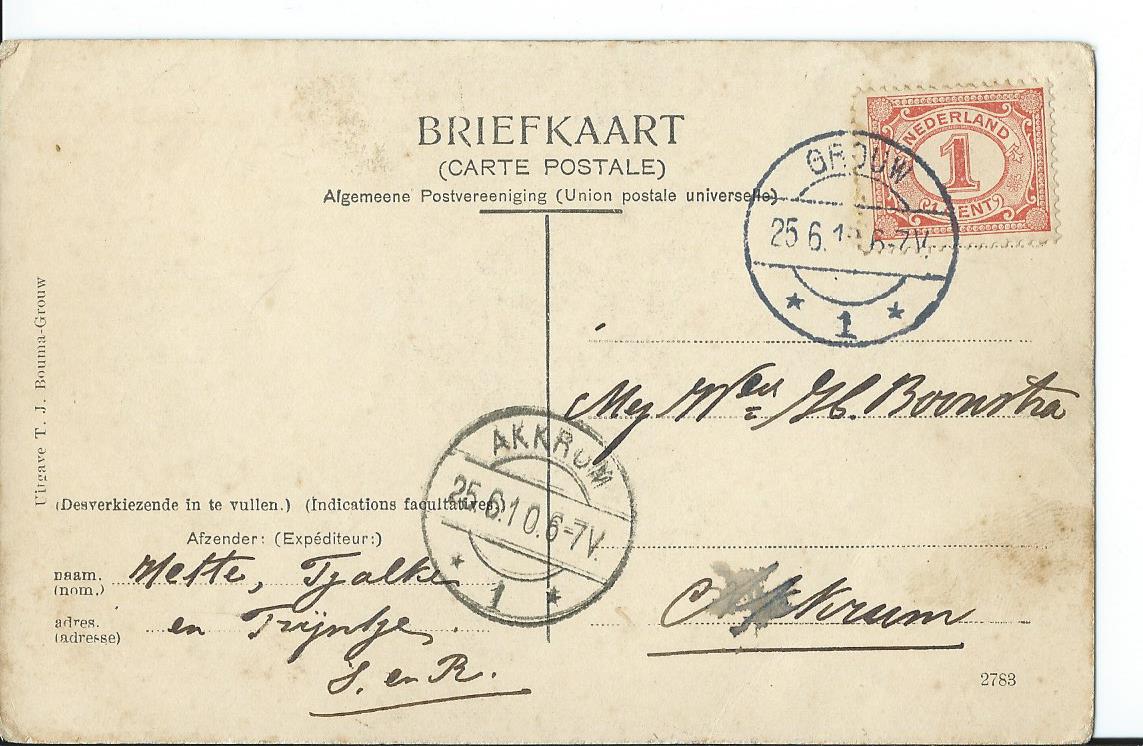 BRIEFKAART
(CARTE POSTALE)
Algemeene Postvereeniging (Union postale universelle)
NEDERLAND
1
CENT
GROUW
25 6.1 6-7V.
1
Uitgave T. J. Bouma-Grouw
Mej Wed H. Boonstra
AKKRUM
25.6.10.6-7V.
1
(Desverkiezende in te vullen.) (Indications facultatives)
Afzender: (Expéditeur:)
naam. Hette, Tjalke
(nom.)
adres. en Trijntje
(adresse)
S. en R.
Akkrum
2783